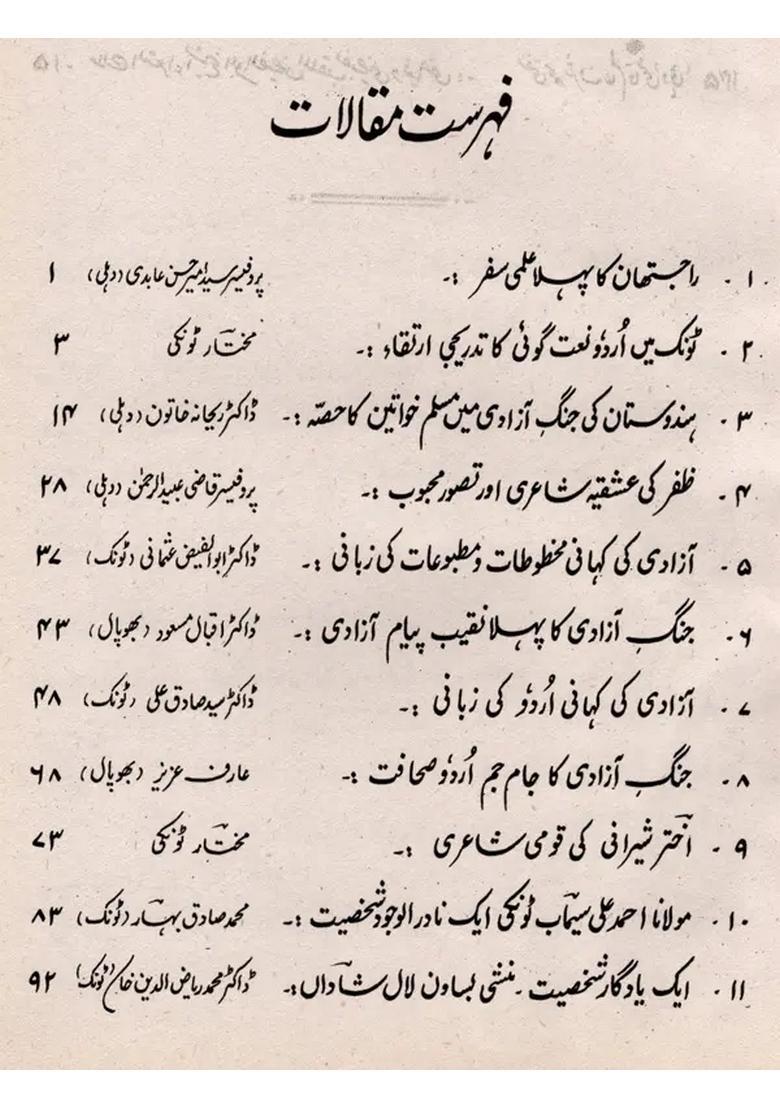 فہرست مقالات
۱ - راجستھان کا پہلا علمی سفر :- پروفیسر سید امیر حسن عابدی (دہلی) ۱
۲ - ٹونک میں اُردو نعت گوئی کا تدریجی ارتقاء :- مختار ٹونکی ۳
۳ - ہندوستان کی جنگِ آزادی میں مسلم خواتین کا حصّہ :- ڈاکٹر ریحانہ خاتون (دہلی) ۱۴
۴ - ظفر کی عشقیہ شاعری اور تصور محبوب :- پروفیسر قاضی عبید الرحمٰن (دہلی) ۲۸
۵ - آزادی کی کہانی مخطوطات و مطبوعات کی زبانی :- ڈاکٹر ابوالفیض عثمانی (ٹونک) ۳۷
۶ - جنگِ آزادی کا پہلا نقیب پیام آزادی :- ڈاکٹر اقبال مسعود (بھوپال) ۴۳
۷ - آزادی کی کہانی اُردو کی زبانی :- ڈاکٹر سید صادق علی (ٹونک) ۴۸
۸ - جنگِ آزادی کا جام جم اُردو صحافت :- عارف عزیز (بھوپال) ۶۸
۹ - اختر شیرانی کی قومی شاعری :- مختار ٹونکی ۷۳
۱۰ - مولانا احمد علی سیماب ٹونکی ایک نادر الوجود شخصیت :- محمد صادق بہار (ٹونک) ۸۳
۱۱ - ایک یادگار شخصیت - منشی بساون لال شاداں :- ڈاکٹر محمد ریاض الدین خان (ٹونک) ۹۲